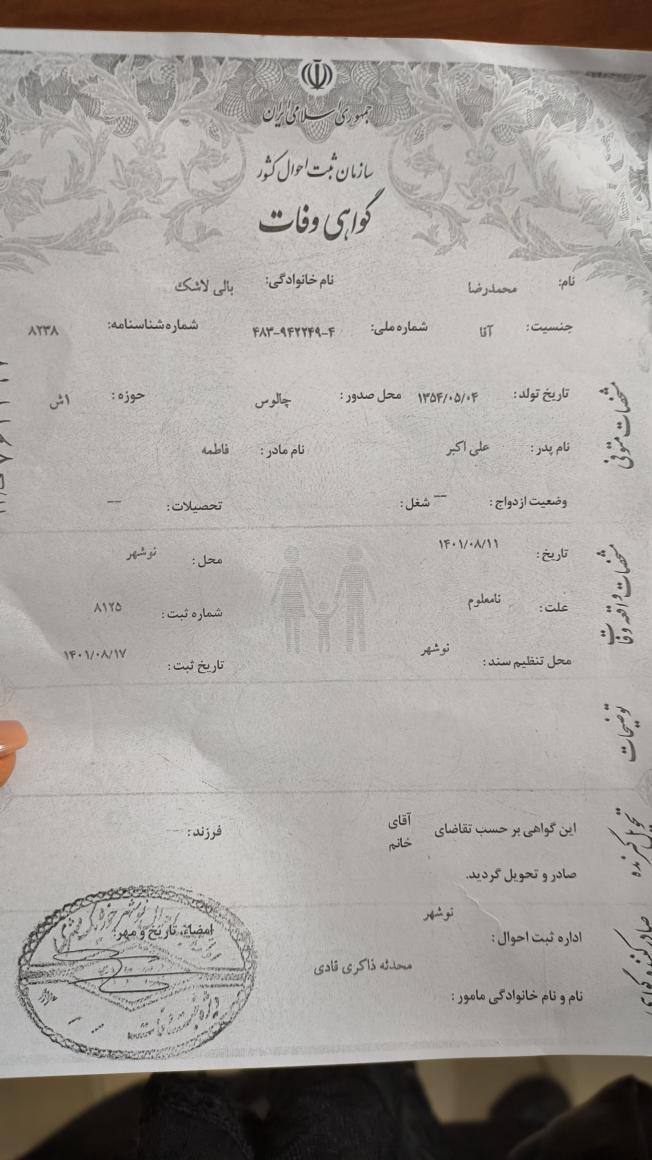 جمهوری اسلامی ایران
سازمان ثبت احوال کشور
گواهی وفات
نام: محمدرضا نام خانوادگی: بالی لاشک
جنسیت: آقا شماره ملی: ۴۸۳-۹۴۲۲۴۹-۴ شماره شناسنامه: ۸۲۳۸
تاریخ تولد: ۱۳۵۴/۰۵/۰۴ محل صدور: چالوس حوزه: ۱ش
نام پدر: علی اکبر نام مادر: فاطمه
وضعیت ازدواج: — شغل: تحصیلات: —
مشخصات متوفی
تاریخ: ۱۴۰۱/۰۸/۱۱ محل: نوشهر
علت: نامعلوم شماره ثبت: ۸۱۲۵
محل تنظیم سند: نوشهر تاریخ ثبت: ۱۴۰۱/۰۸/۱۷
مشخصات واقعه وفات
توضیحات
این گواهی بر حسب تقاضای آقای خانم فرزند:
صادر و تحویل گردید.
تحویل گیرنده
اداره ثبت احوال: نوشهر
امضاء، تاریخ و مهر
نام و نام خانوادگی مامور: محدثه ذاکری قادی
صادر کننده گواهی